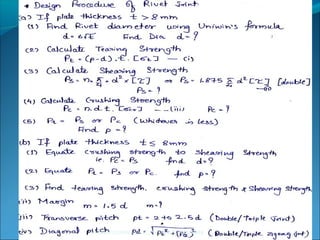 * Design Procedure of Rivet Joint
(a) If plate thickness t > 8mm
(1) Find Rivet diameter using Unwin's formula
d = 6√t Find Dia d = ?
(2) Calculate Tearing Strength
Pt = (p-d). t. [σt] — (i)
(3) Calculate Shearing Strength
Ps = n. π/4 d² × [τ] or Ps = 1.875 π/4 d² [τ] [double]
Ps = ?
(4) Calculate Crushing Strength
Pc = n. d. t. [σc] - - - (iii) Pc = ?
(5) Pt = Ps or Pc (Whichever is less)
Find p = ?
(b) If plate thickness t ≤ 8mm
(1) Equate crushing strength to Shearing Strength
ie. Pc = Ps find d = ?
(2) Equate Pt = Ps or Pc find p = ?
(3) Find tearing strength, crushing strength & Shearing Strength
(ii) Margin m = 1.5 d m = ?
(iii) Transverse pitch pt = 2 to 2.5 d (Double/Triple Joint)
(iv) Diagonal pitch (Double/Triple zigzag joint)